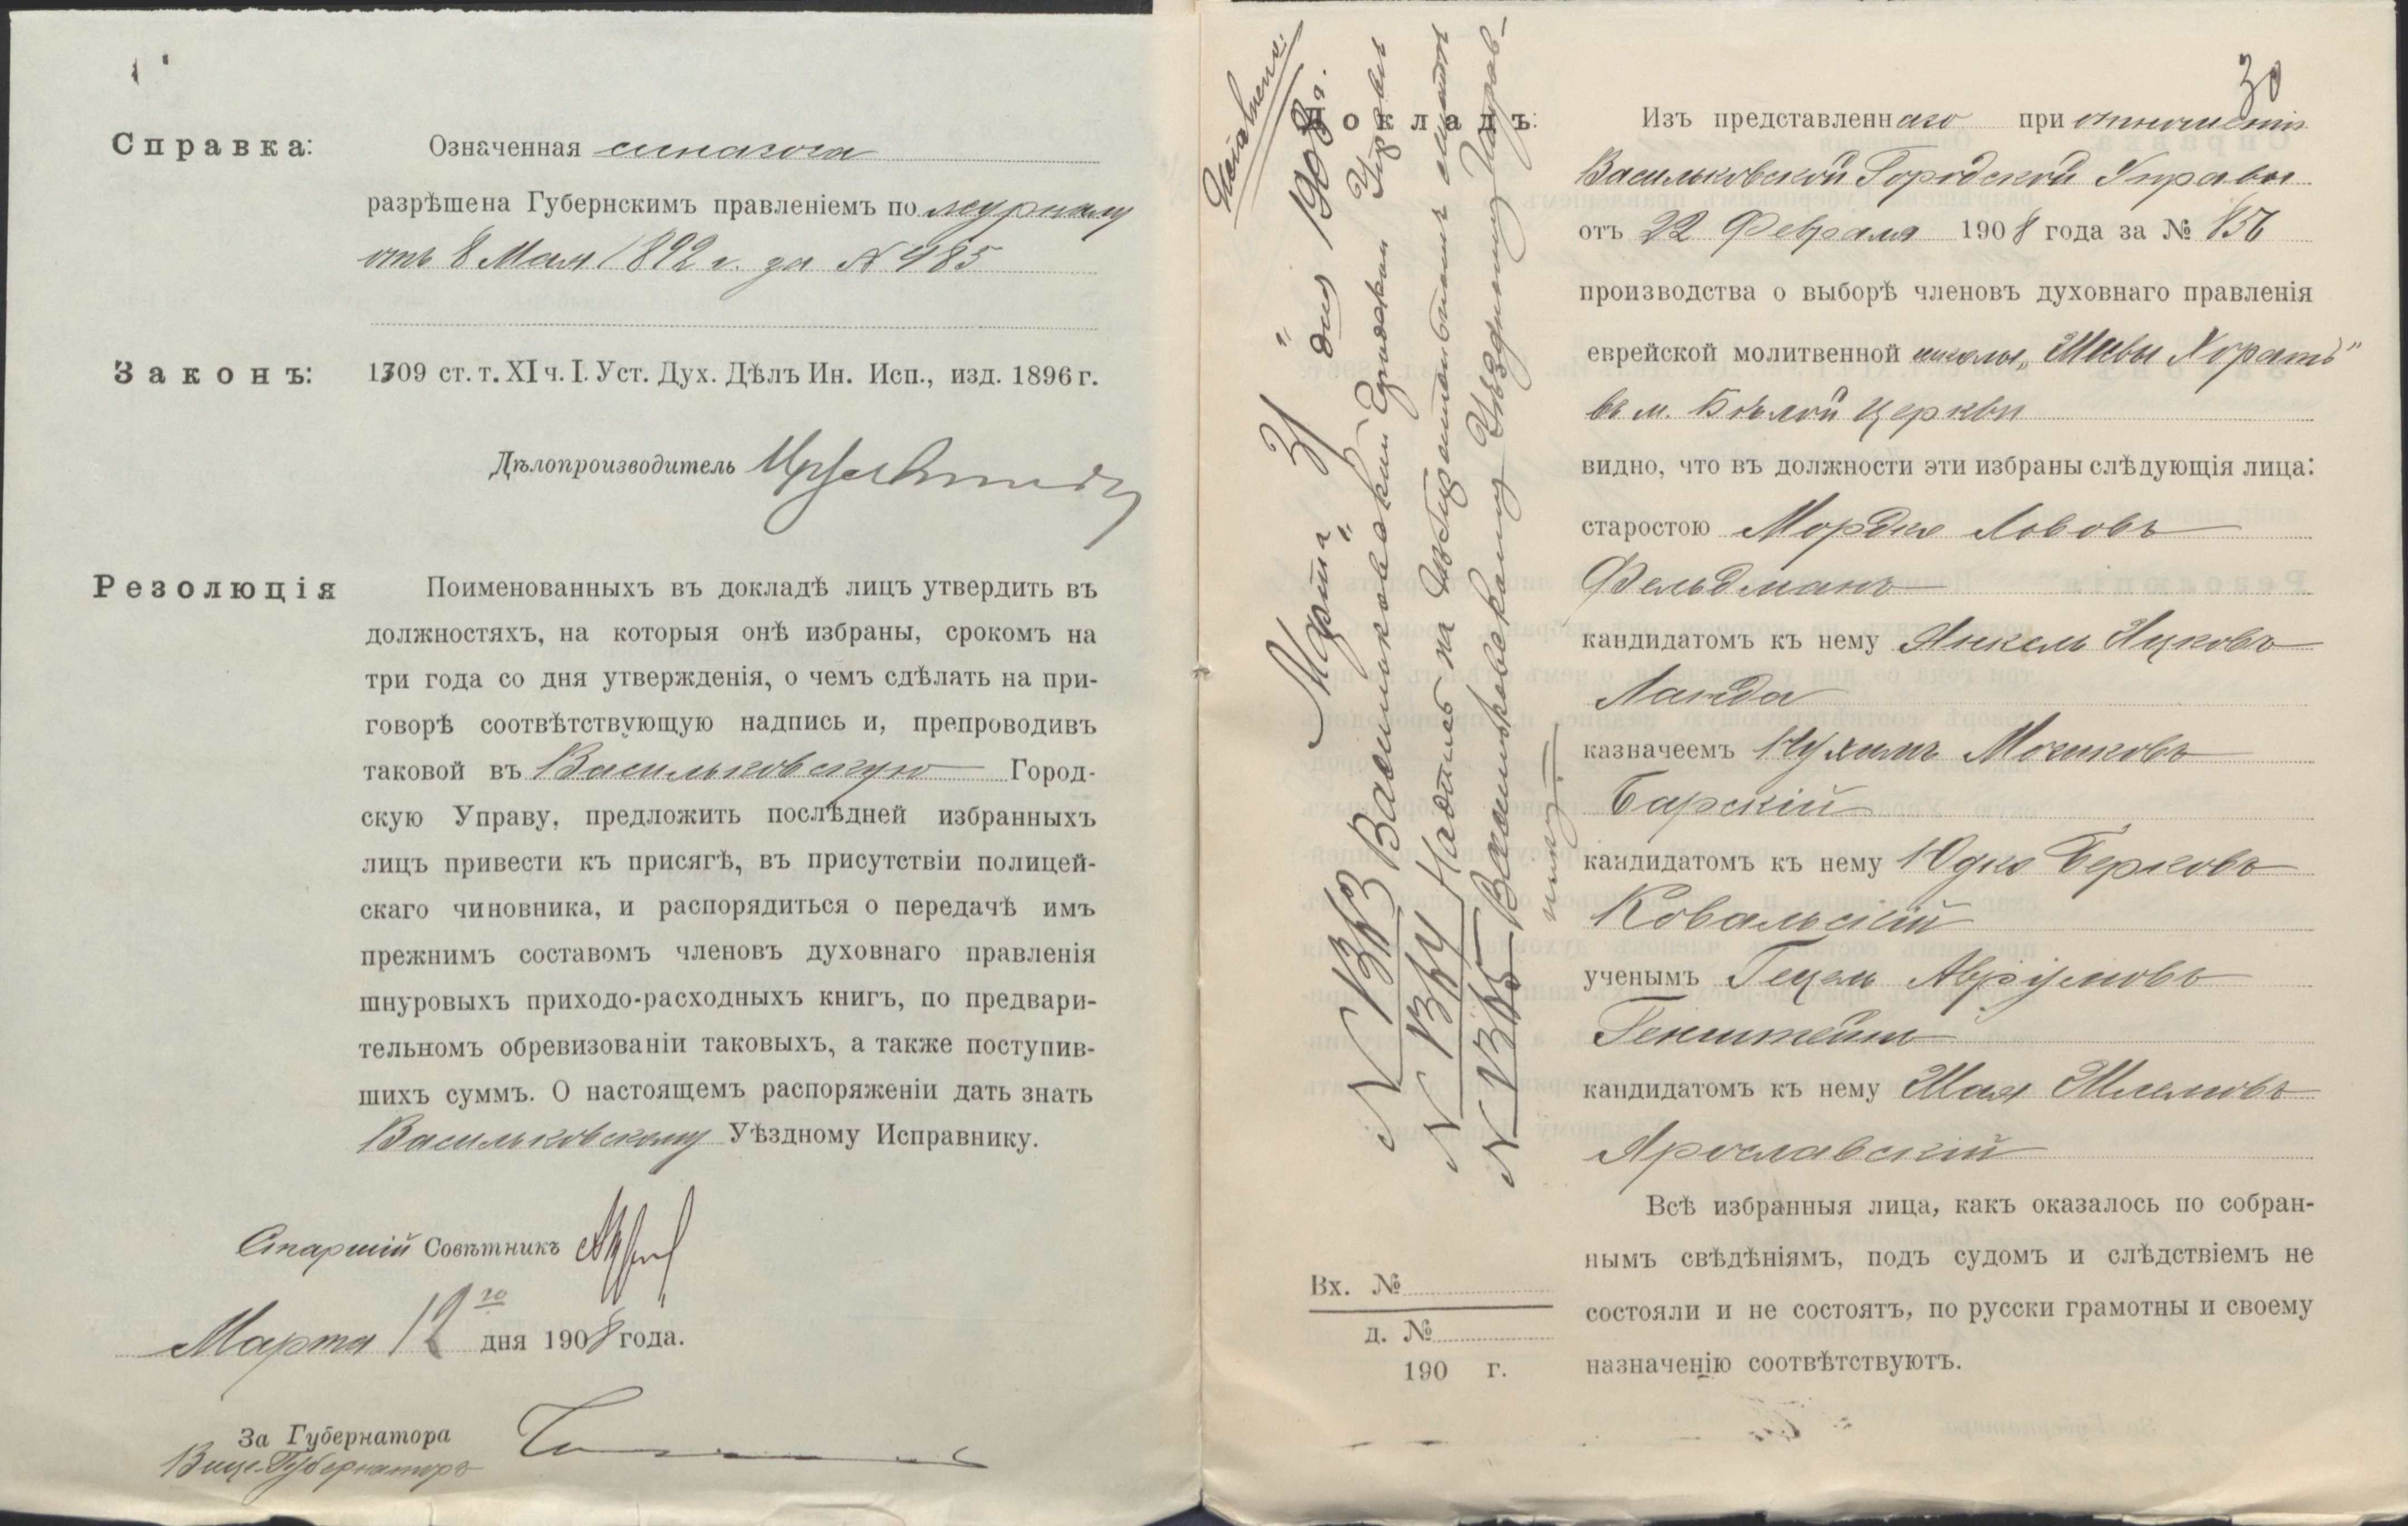 Справка:
Означенная синагога
разрѣшена Губернскимъ правленіемъ по журналу
отъ 8 Мая 1892 г. за № 485
Законъ:
1309 ст. т. XI ч. I. Уст. Дух. Дѣлъ Ин. Исп., изд. 1896 г.
Дѣлопроизводитель
Резолюція
Поименованныхъ въ докладѣ лицъ утвердить въ
должностяхъ, на которыя онѣ избраны, срокомъ на
три года со дня утвержденія, о чемъ сдѣлать на при-
говорѣ соотвѣтствующую надпись и, препроводивъ
таковой въ Васильковскую Город-
скую Управу, предложить послѣдней избранныхъ
лицъ привести къ присягѣ, въ присутствіи полицей-
скаго чиновника, и распорядиться о передачѣ имъ
прежнимъ составомъ членовъ духовнаго правленія
шнуровыхъ приходо-расходныхъ книгъ, по предвари-
тельномъ обревизованіи таковыхъ, а также поступив-
шихъ суммъ. О настоящемъ распоряженіи дать знать
Васильковскому Уѣздному Исправнику.
Старшій Совѣтникъ
Марта 12 го дня 1908 года.
За Губернатора
Вице-Губернаторъ
30
Докладъ:
Изъ представленнаго при отношеніи
Васильковской Городской Управы
отъ 22 Февраля 1908 года за № 856
производства о выборѣ членовъ духовнаго правленія
еврейской молитвенной школы „Шивы Хоратъ"
въ м. Бѣлой Церкви
видно, что въ должности эти избраны слѣдующія лица:
старостою Мордко Лововъ
Фельдманъ
кандидатомъ къ нему Янкель Ицковъ
Ланда
казначеемъ Нухимъ Мошковъ
Барскій
кандидатомъ къ нему Юдко Берковъ
Ковальскій
ученымъ Гецель Аврумовъ
Генштейнъ
кандидатомъ къ нему Шая Шлемовъ
Ярославскій
Всѣ избранныя лица, какъ оказалось по собран-
нымъ свѣдѣніямъ, подъ судомъ и слѣдствіемъ не
состояли и не состоятъ, по русски грамотны и своему
назначенію соотвѣтствуютъ.
Марта „31" дня 1908 г.
№ 1343 Васильковской Городской Управы
№ 1344 Надпись на
№ 1345 Васильковскому Уѣздному Исправ-
нику
Вх. №
д. №
190 г.